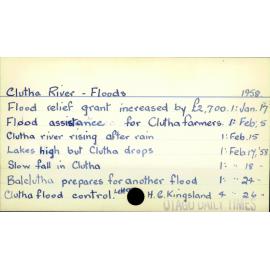 Clutha River - Floods 1958
Flood relief grant increased by £2,700. 1: Jan. 17
Flood assistance for Clutha farmers. 1: Feb; 5
Clutha river rising after rain 1: Feb. 15
Lakes high but Clutha drops 1: Feb. 17, '58
Slow fall in Clutha 1: " 18 -
Balclutha prepares for another flood 1: " 24 -
Clutha flood control. Letter H. C. Kingsland 4 " 26 -
OTAGO DAILY TIMES